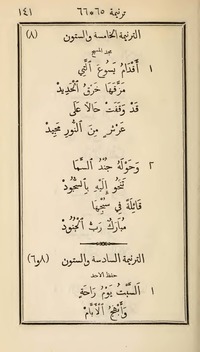 ترنيمة ٦٥ و٦٦ ١٤١
الترنيمة الخامسة والستون (٨)
مجد المسيح
١ أَقْدَامُ يَسُوعَ ٱلَّتِي
مَزَّقَهَا خَرْقُ ٱلْحَدِيدْ
قَدْ وَقَفَتْ حَالاً عَلَى
عَرْشٍ مِنَ ٱلنُّورِ مَجِيدْ
٢ وَحَوْلَهُ جُنْدُ ٱلسَّمَا
تَحْبُو إِلَيْهِ بِٱلسُّجُودْ
قَائِلَةً فِي سُبْحِهَا
مُبَارَكٌ رَبُّ ٱلْجُنُودْ
الترنيمة السادسة والستون (٨و٦)
حفظ الاحد
١ أَلسَّبْتُ يَوْمُ رَاحَةٍ
وَأَبْهَجُ ٱلْأَيَّامْ